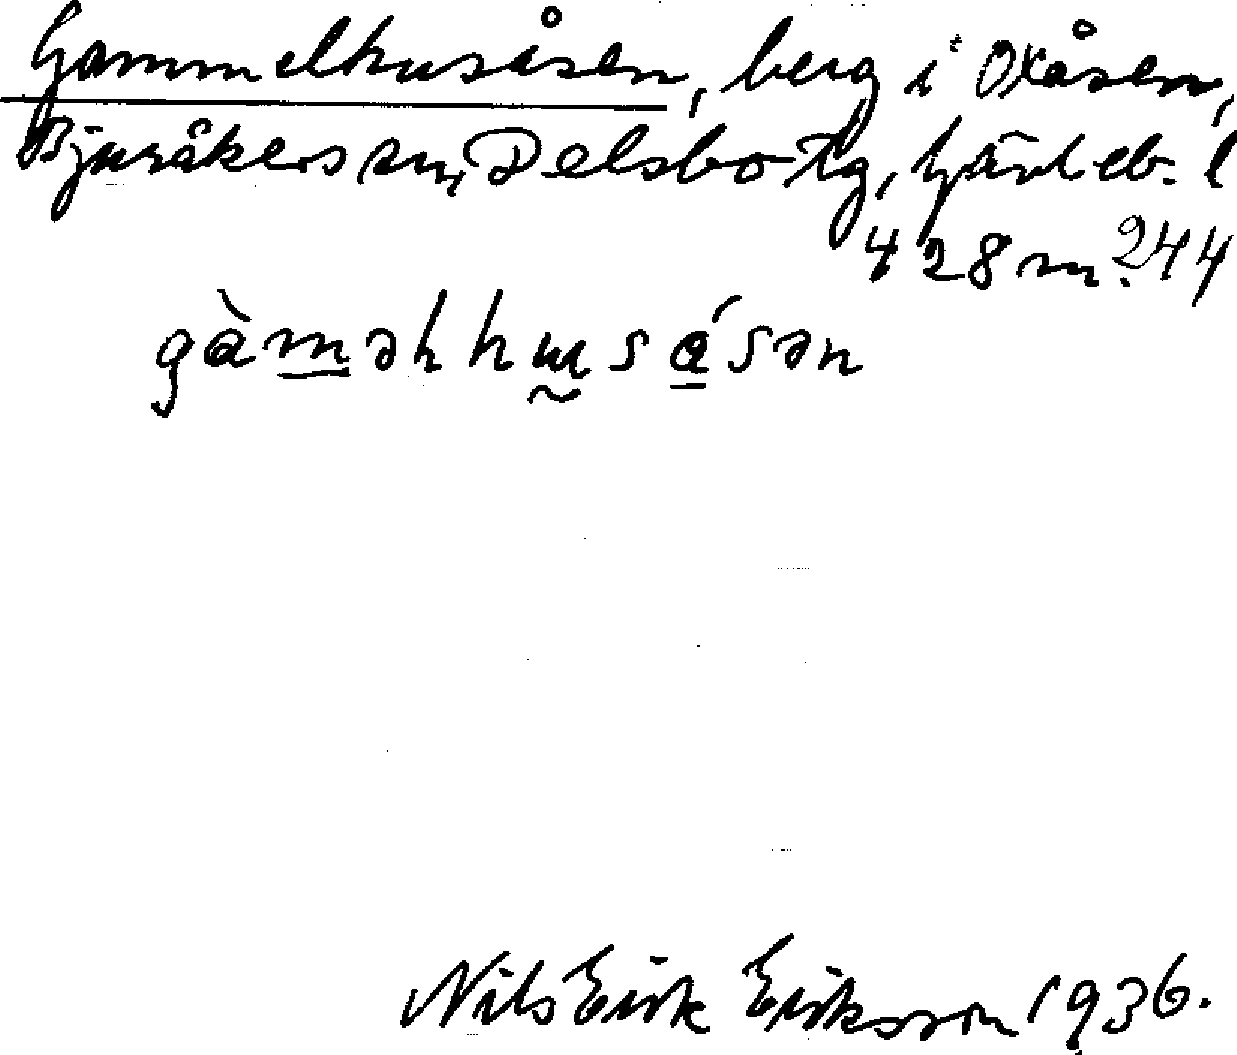 Gammelhusåsen, berg i Oxåsen,
Bjuråkers sn, Delsbo tg, Gävleb. l
428 m. 244
gàmǝhhusásǝn
Nils Erik Eriksson 1936.